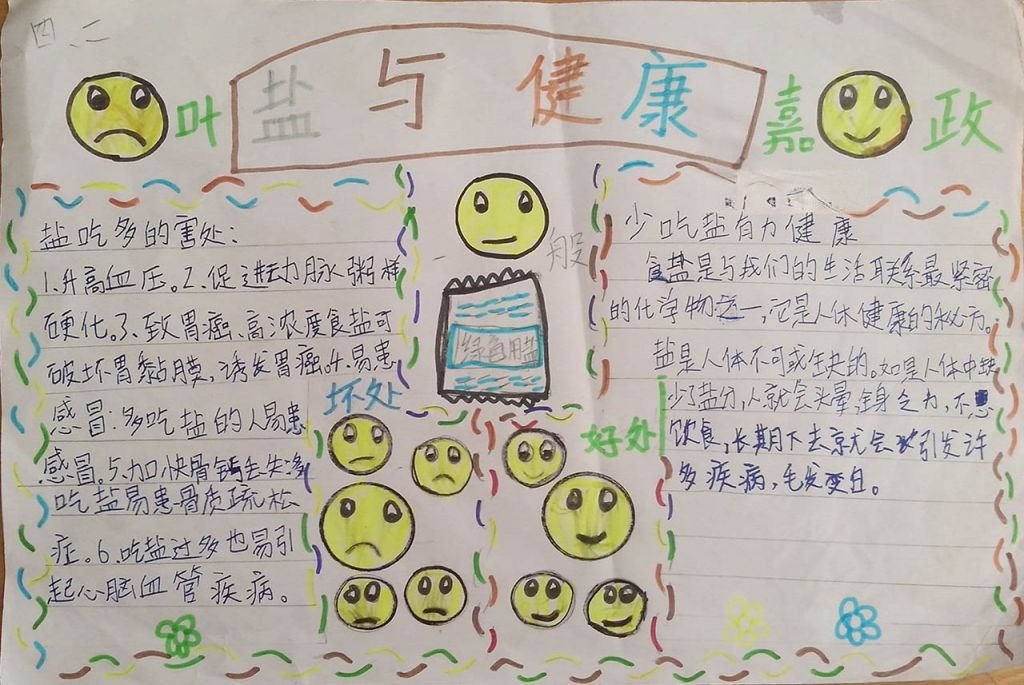 四、二
叶
盐与健康
嘉
政
盐吃多的害处：
1.升高血压。2.促进动脉粥样
硬化。3、致胃癌、高浓度食盐可
破坏胃黏膜，诱发胃癌。4.易患
感冒：多吃盐的人易患
感冒。5、加快骨钙丢失
吃盐易患骨质疏松
症。6.吃盐过多也易引
起心脑血管疾病。
般
绿色用盐
坏处
好处
少吃盐有力健康
食盐是与我们的生活联系最紧密
的化学物之一，它是人体健康的秘方。
盐是人体不可或缺的。如是人体中缺
少了盐分，人就会头晕，全身乏力，不思
饮食，长期下去就会引发许
多疾病，毛发变白。